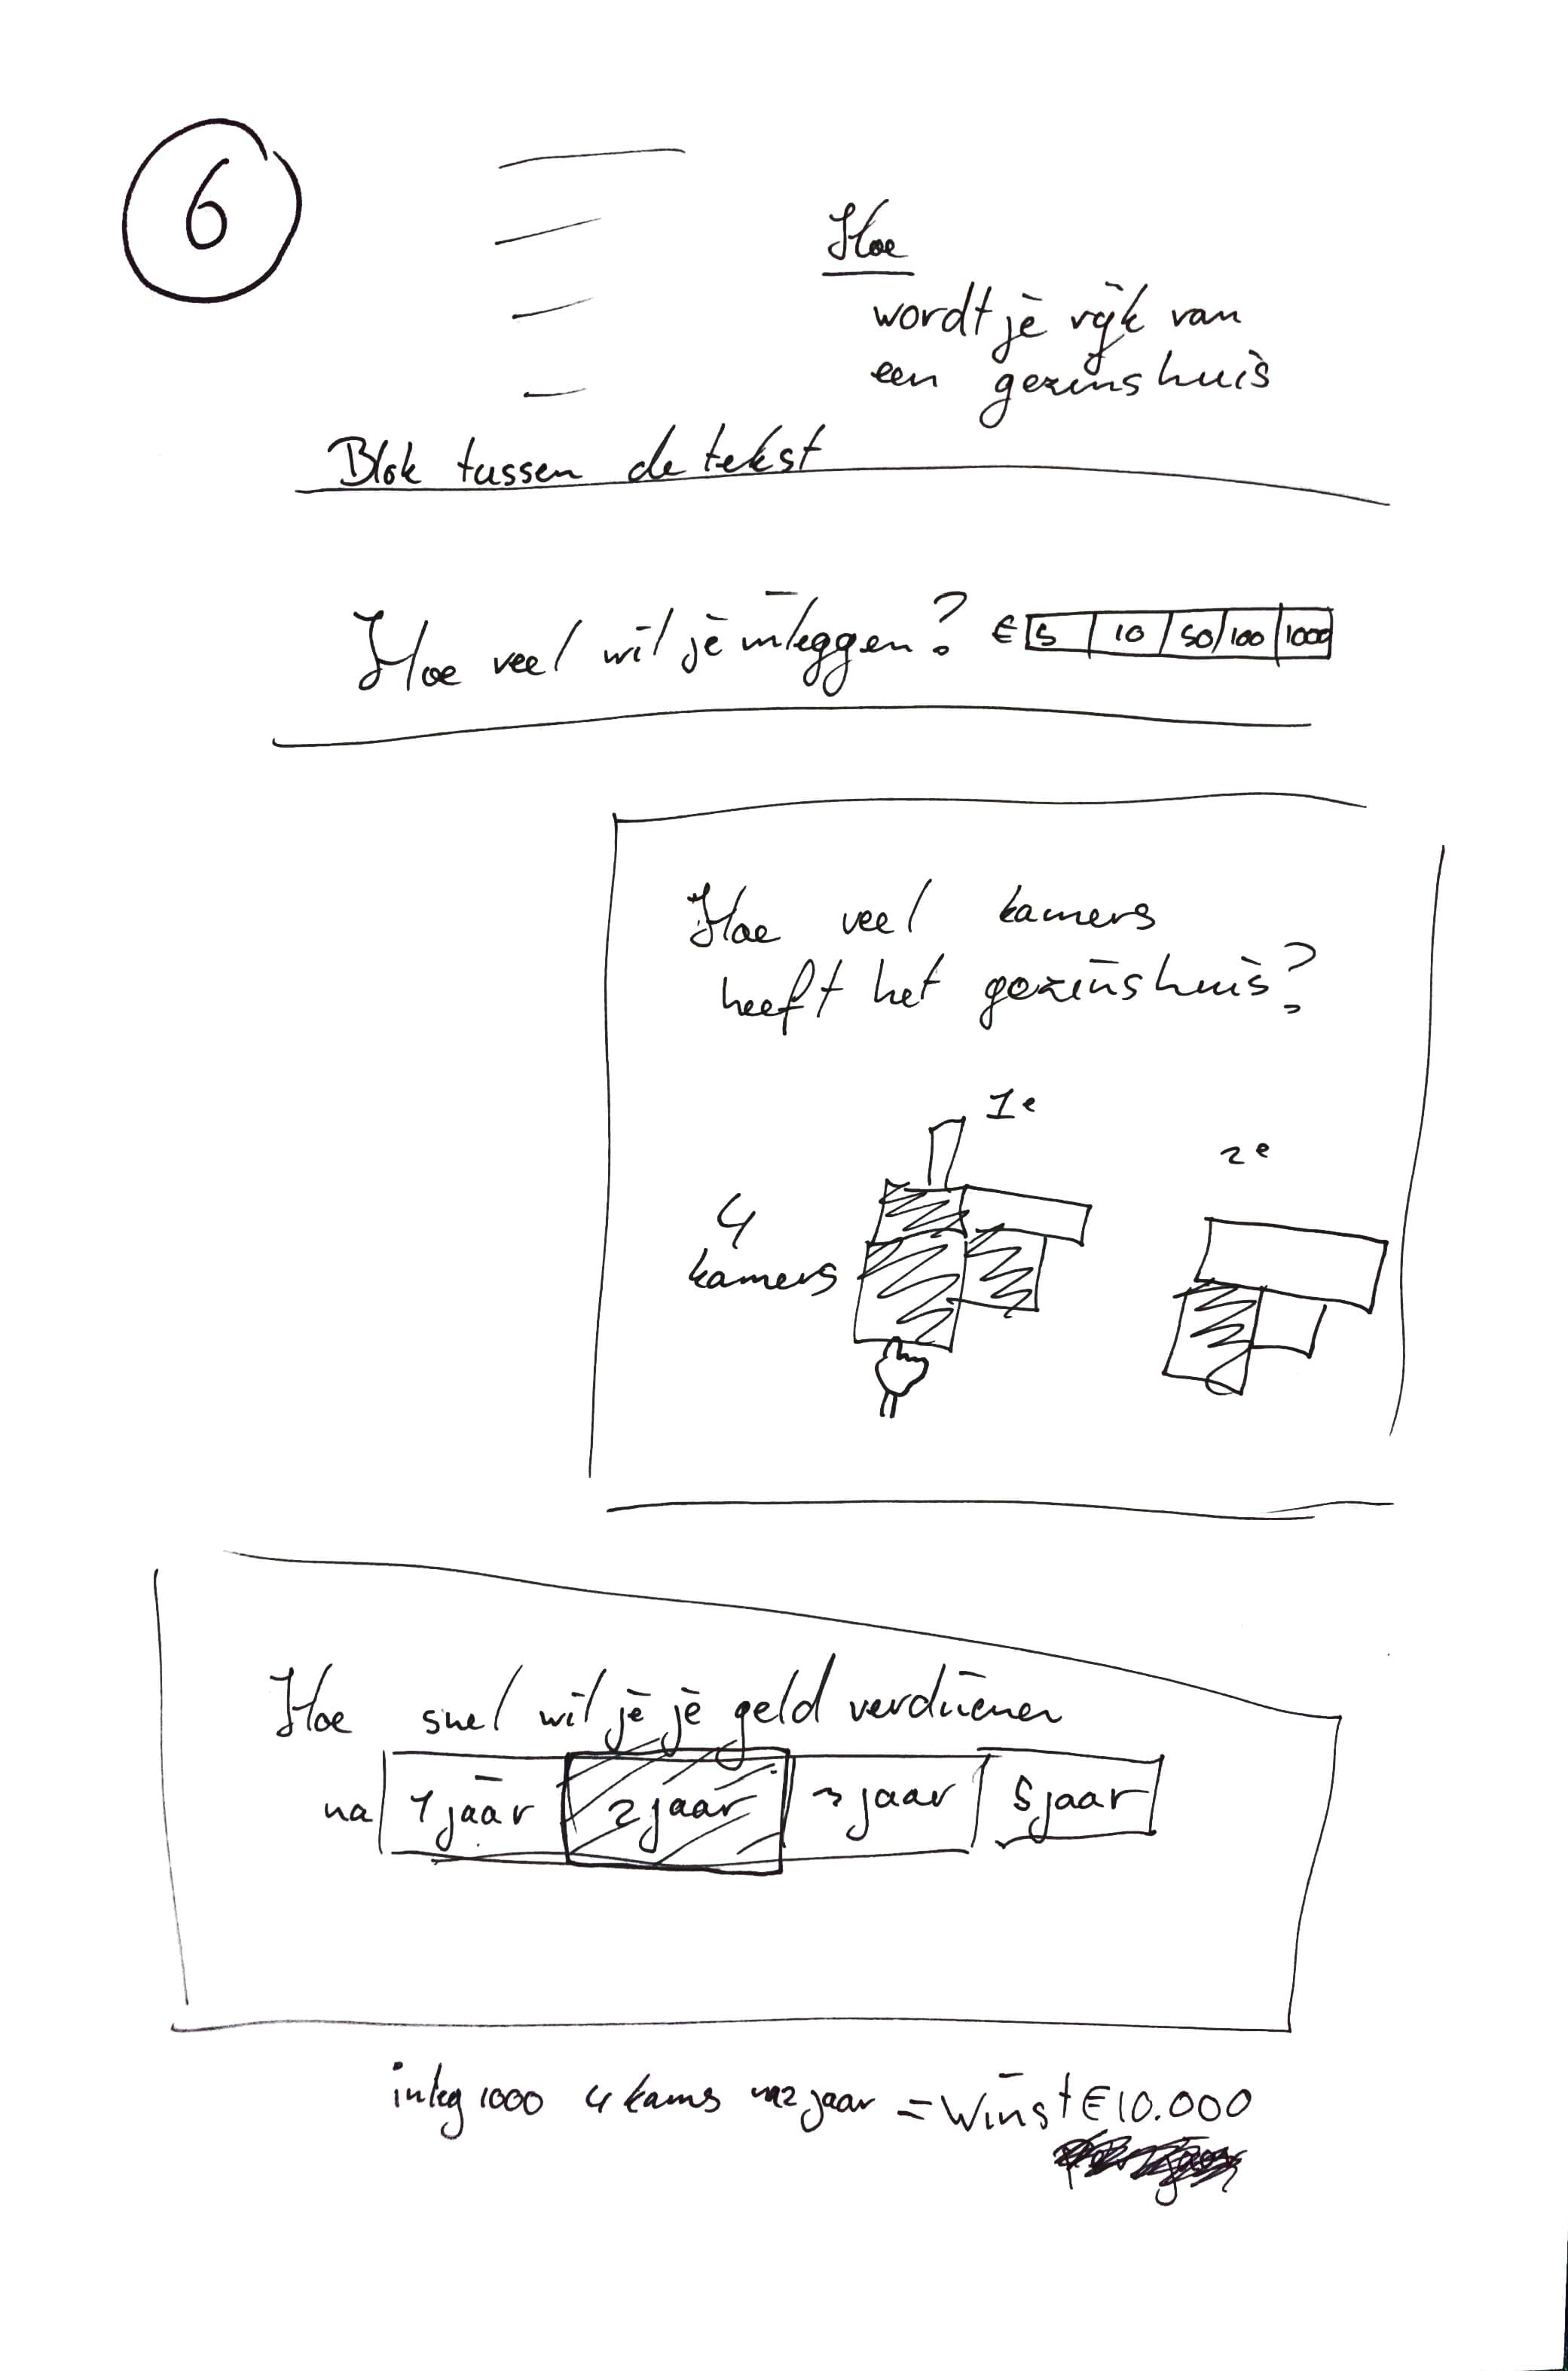 6
Hoe
wordt je rijk van
een gezinshuis
Blok tussen de tekst
Hoe veel wil je inleggen? € 5 10 50 100 1000
Hoe veel kamers
heeft het gezinshuis?
1e
2e
4
kamers
Hoe snel wil je je geld verdienen
na 1 jaar 2 jaar 3 jaar 5 jaar
inleg 1000 4 kams na 2 jaar = Winst €10.000